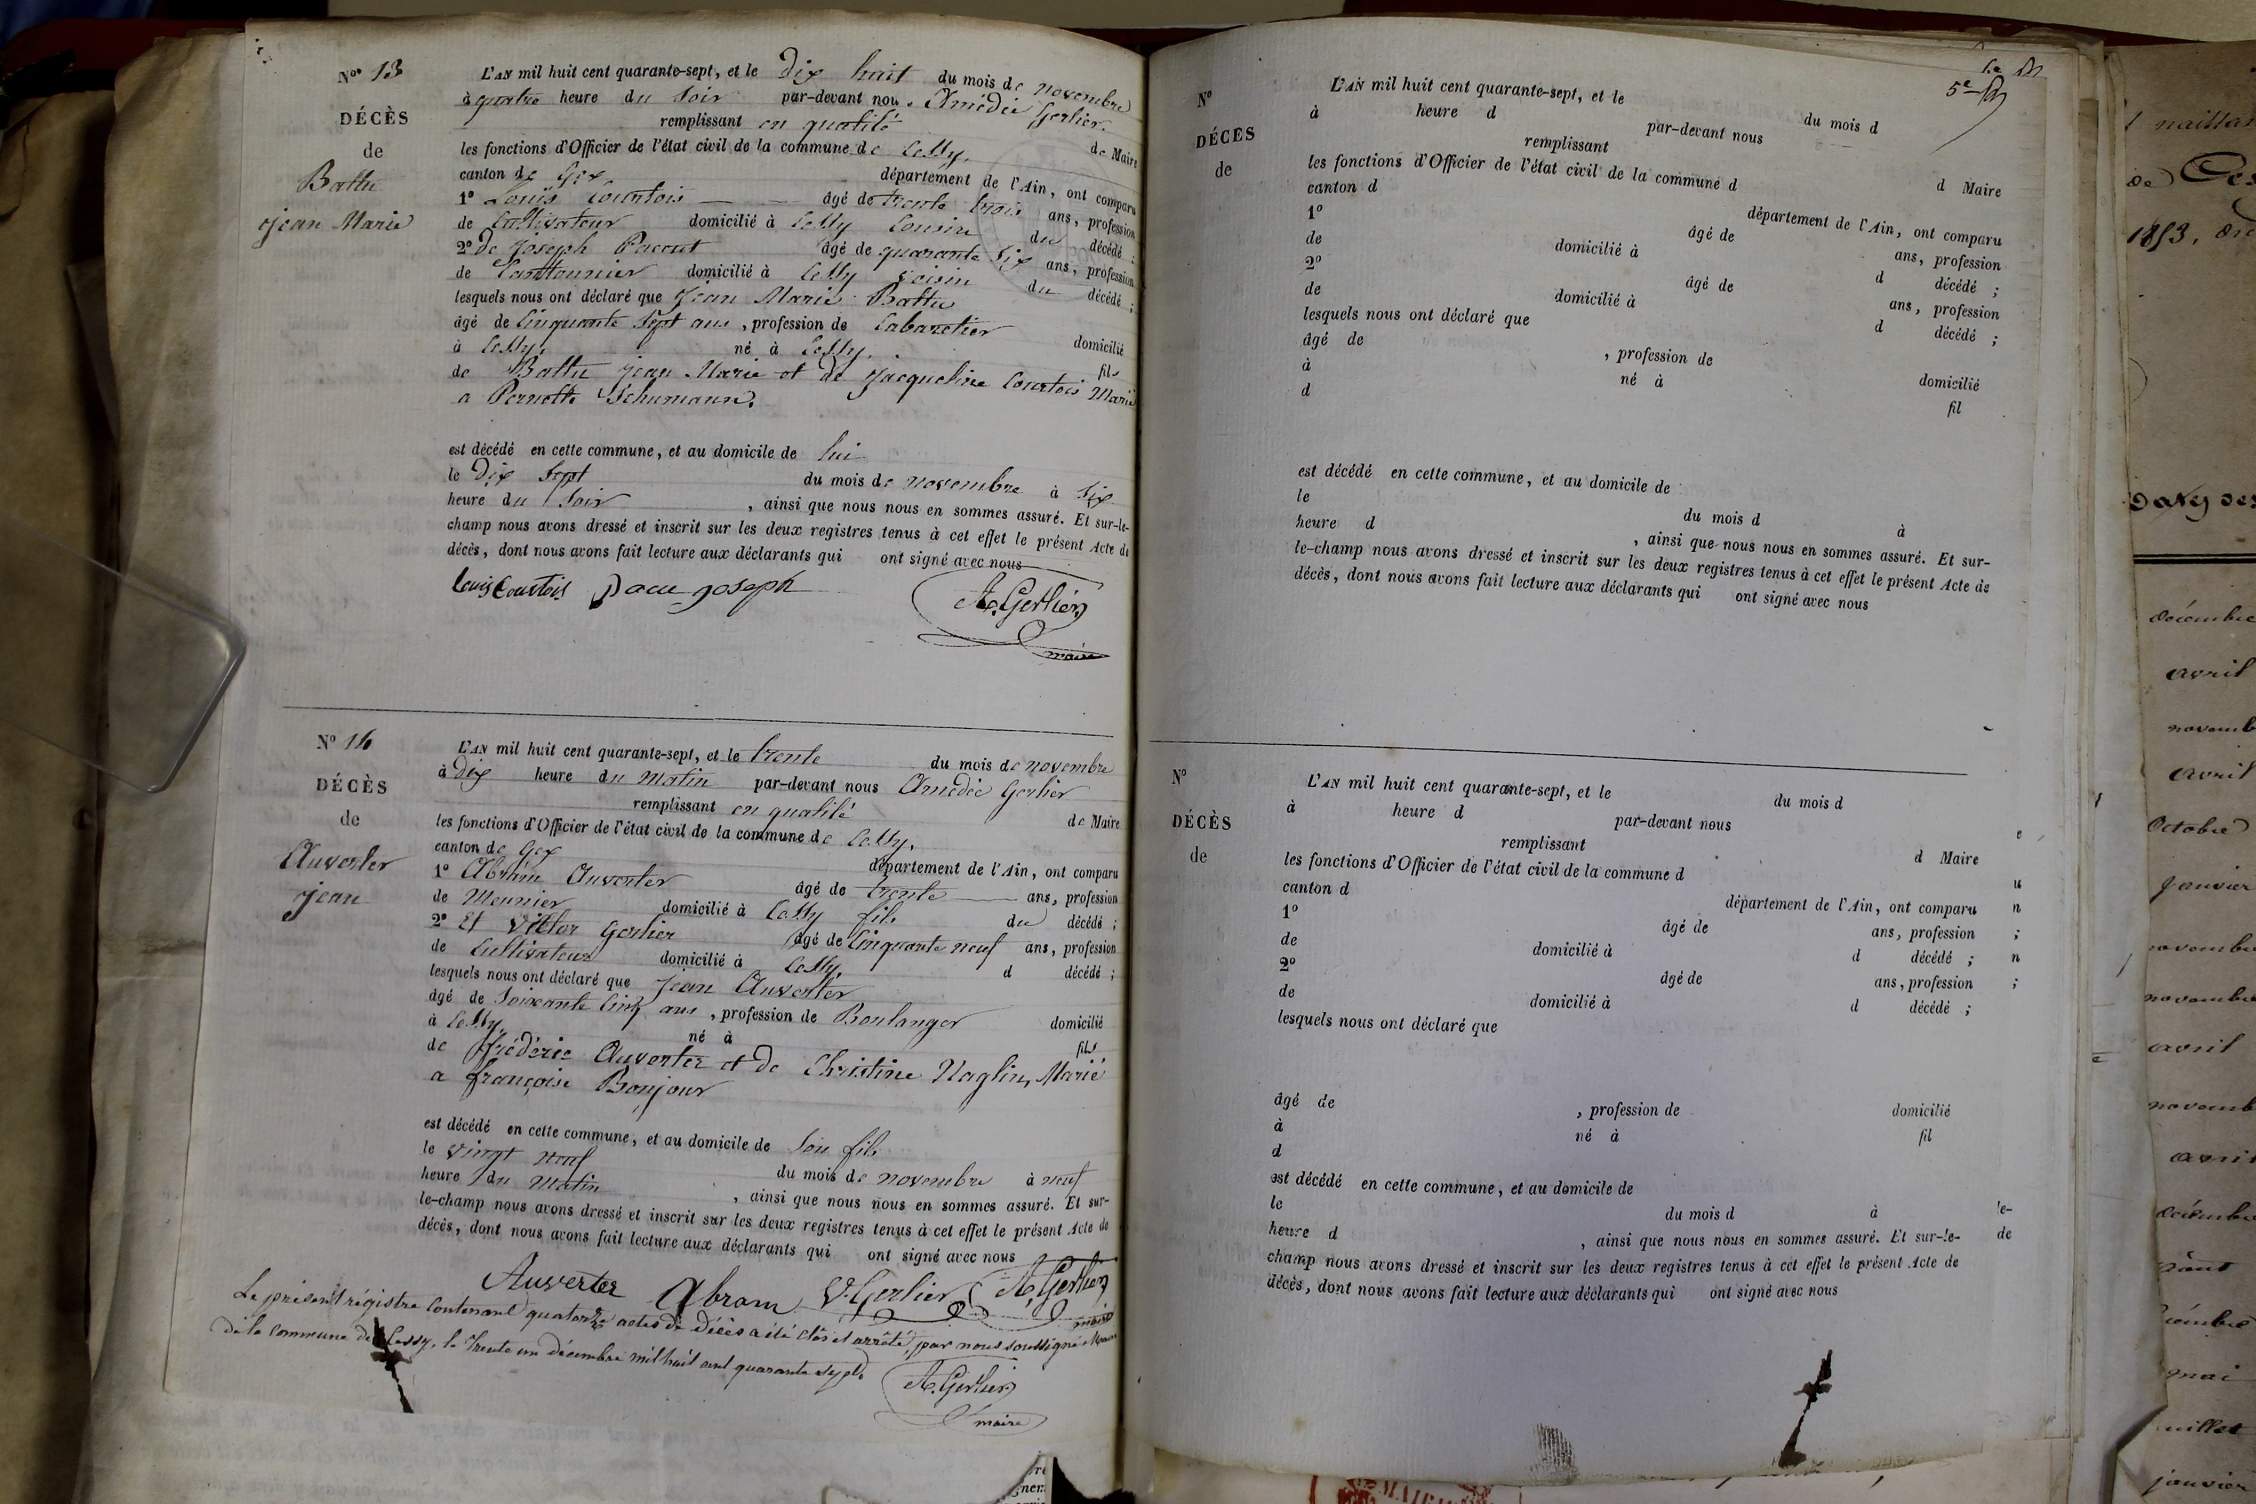 Nº 13
DÉCÈS
de
Battu
jean Marie
L'AN mil huit cent quarante-sept, et le dix huit du mois de novembre
à quatre heure du Soir par-devant nou. Amédée Gerlier.
remplissant en qualité de Maire
les fonctions d'Officier de l'état civil de la commune de Cessy.
canton de Gex département de l'Ain, ont comparu
1º Louis Courtois âgé de trente trois ans, profession
de Cultivateur domicilié à Cessy Cousin du décédé ;
2º de Joseph Pacout âgé de quarante Six ans, profession
de Cantonnier domicilié à Cessy voisin du décédé ;
lesquels nous ont déclaré que Jean Marie Battu
âgé de Cinquante Sept ans, profession de Cabaretier domicilié
à Cessy, né à Cessy. fils
de Battu jean Marie et de Jacqueline Courtois Marié
a Pernette Schumann.
est décédé en cette commune, et au domicile de lui
le Dix Sept du mois de novembre à Six
heure du Soir, ainsi que nous nous en sommes assuré. Et sur-le-
champ nous avons dressé et inscrit sur les deux registres tenus à cet effet le présent Acte de
décès, dont nous avons fait lecture aux déclarants qui ont signé avec nous
Louis Courtois Pacu joseph A. Gerlier
maire
Nº 14
DÉCÈS
de
Auverter
jean
L'AN mil huit cent quarante-sept, et le trente du mois de novembre
à Dix heure du matin par-devant nous Amédée Gerlier
remplissant en qualité de Maire
les fonctions d'Officier de l'état civil de la commune de Cessy.
canton de Gex département de l'Ain, ont comparu
1º Abram Auverter âgé de trente ans, profession
de Meunier domicilié à Cessy fils du décédé ;
2º Et Victor Gerlier âgé de Cinquante neuf ans, profession
de Cultivateur domicilié à Cessy. d décédé ;
lesquels nous ont déclaré que Jean Auverter
âgé de Soixante Cinq ans, profession de Boulanger domicilié
à Cessy, né à fils
de Frédéric Auverter et de Christine Naglin, Marié
a françoise Bonjour
est décédé en cette commune, et au domicile de Son fils
le vingt neuf du mois de novembre à neuf
heure du Matin, ainsi que nous nous en sommes assuré. Et sur-
le-champ nous avons dressé et inscrit sur les deux registres tenus à cet effet le présent Acte de
décès, dont nous avons fait lecture aux déclarants qui ont signé avec nous
Auverter Abram V. Gerlier A. Gerlier
maire
Le présent régistre Contenant quatorze actes de Décès a été clos et arrêté, par nous soussigné Maire
de la Commune de Cessy, le Trente un décembre mil huit cent quarante sept.
A. Gerlier
maire
5e
Nº
DÉCÈS
de
L'AN mil huit cent quarante-sept, et le du mois d
à heure d par-devant nous
remplissant d Maire
les fonctions d'Officier de l'état civil de la commune d
canton d département de l'Ain, ont comparu
1º âgé de ans, profession
de domicilié à d décédé ;
2º âgé de ans, profession
de domicilié à d décédé ;
lesquels nous ont déclaré que
âgé de , profession de domicilié
à né à fil
d
est décédé en cette commune, et au domicile de
le du mois d à
heure d , ainsi que nous nous en sommes assuré. Et sur-
le-champ nous avons dressé et inscrit sur les deux registres tenus à cet effet le présent Acte de
décès, dont nous avons fait lecture aux déclarants qui ont signé avec nous
Nº
DÉCÈS
de
L'AN mil huit cent quarante-sept, et le du mois d
à heure d par-devant nous
remplissant d Maire
les fonctions d'Officier de l'état civil de la commune d
canton d département de l'Ain, ont comparu
1º âgé de ans, profession
de domicilié à d décédé ;
2º âgé de ans, profession
de domicilié à d décédé ;
lesquels nous ont déclaré que
âgé de , profession de domicilié
à né à fil
d
est décédé en cette commune, et au domicile de
le du mois d à
heure d , ainsi que nous nous en sommes assuré. Et sur-le-
champ nous avons dressé et inscrit sur les deux registres tenus à cet effet le présent Acte de
décès, dont nous avons fait lecture aux déclarants qui ont signé avec nous
de
1853,
décembre
avril
novemb
avril
Octobre
Janvier
novembre
novembre
avril
novemb
avri
décembre
août
mai
juillet
janvier